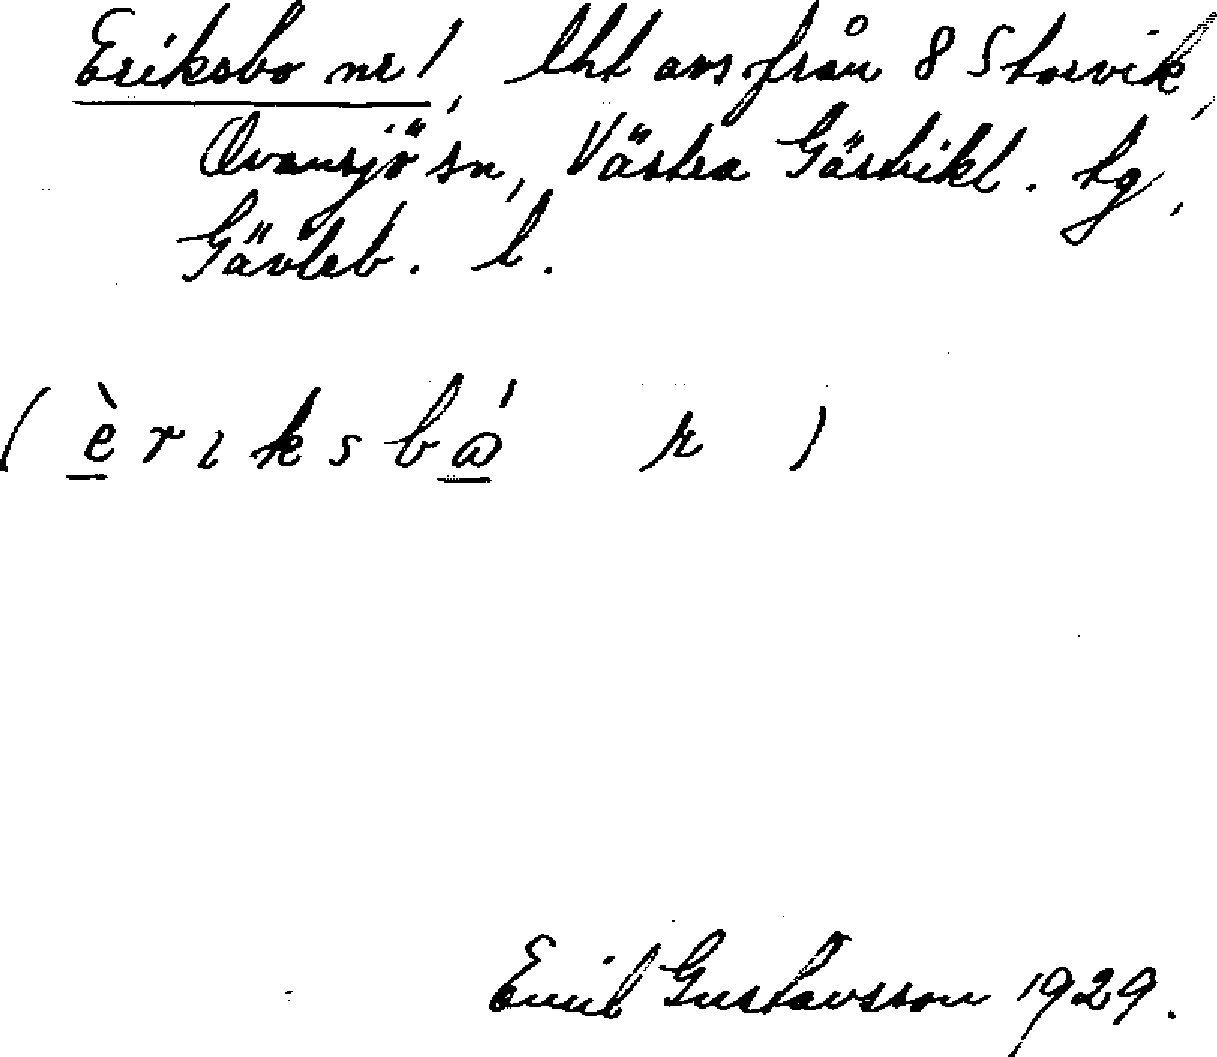 Eriksbo nr 1, lht avs från 8 Storvik,
Ovansjö sn, Västra Gästrikl. tg,
Gävleb. l.
( è r ı k s b ó r )
Emil Gustavsson 1929.